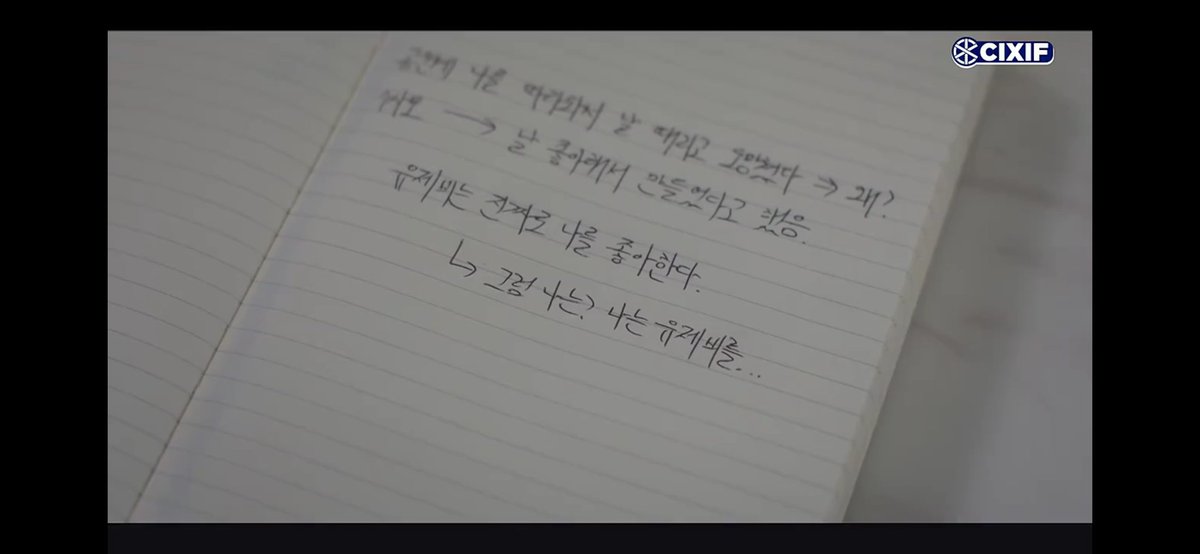 CIXIF
나를 따라와서 날 때리고 도망쳤다 → 왜?
→ 날 좋아해서 만들었다고 했음.
유제비는 진짜로 나를 좋아한다.
↳ 그럼 나는? 나는 유제비를...